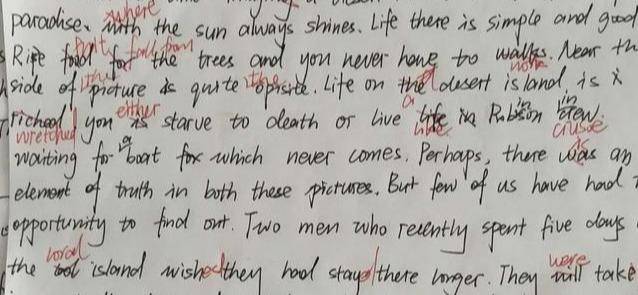 paradise. where the sun always shines. Life there is simple and good
Ripe fruit fall from the trees and you never have to walks. Near th
side of the picture is quite the opisite. Life on the desert island is
riched you either is starve to death or live a life in Robison in crew.
wretched like crusoe
waiting for a boat for which never comes. Perhaps, there was is an
element of truth in both these pictures. But few of us have had
opportunity to find out. Two men who recently spent five days
the coral island wished they had stayed there longer. They were will take